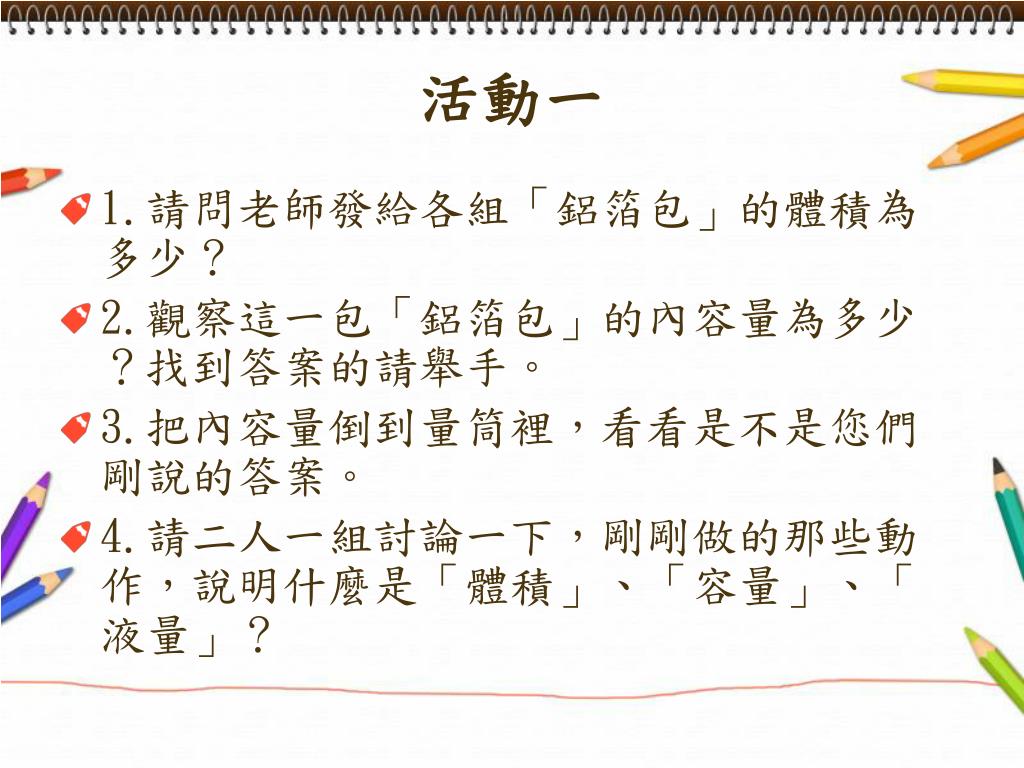 活動一
1.請問老師發給各組「鋁箔包」的體積為
多少？
2.觀察這一包「鋁箔包」的內容量為多少
？找到答案的請舉手。
3.把內容量倒到量筒裡，看看是不是您們
剛說的答案。
4.請二人一組討論一下，剛剛做的那些動
作，說明什麼是「體積」、「容量」、「
液量」？